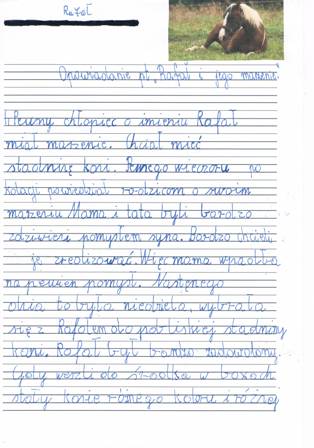 Rafał
Opowiadanie pt. „Rafał i jego marzenie."
Pewny chłopiec o imieniu Rafał
miał marzenie. Chciał mieć
stadninę koni. Pewnego wieczoru po
kolacji powiedział rodzicom o swoim
marzeniu Mama i tata byli bardzo
zdziwieni pomysłem syna. Bardzo chcieli
je zrealizować. Więc mama wpadła
na pewien pomysł. Następnego
dnia to była niedziela, wybrała
się z Rafałem do pobliskiej stadniny
koni. Rafał był bardzo zadowolony.
Gdy weszli do środka w boxach
stały konie różnego koloru i różnej